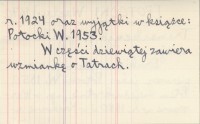 r. 1924 oraz wyjątki w książce:
Potocki W. 1953.
W części dziewiątej zawiera
wzmiankę o Tatrach.